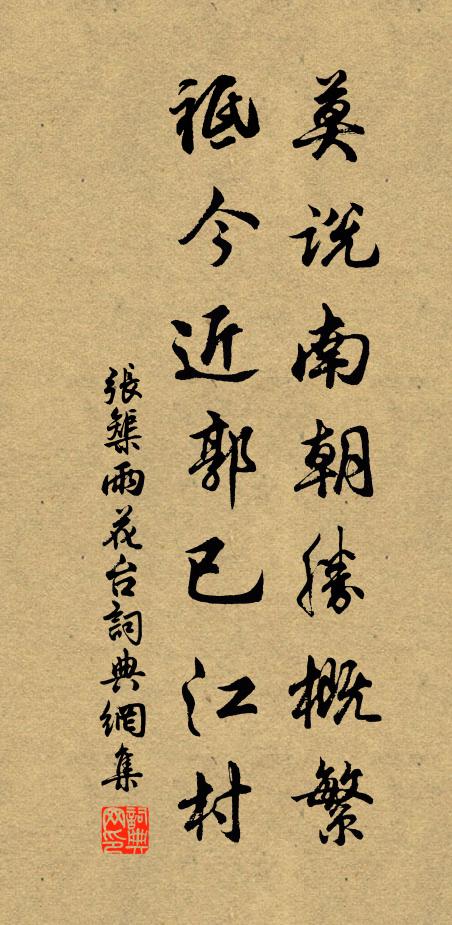 莫說南朝勝概繁
祗今近郭已江村
張榘雨花台詞典網集
詞典网印